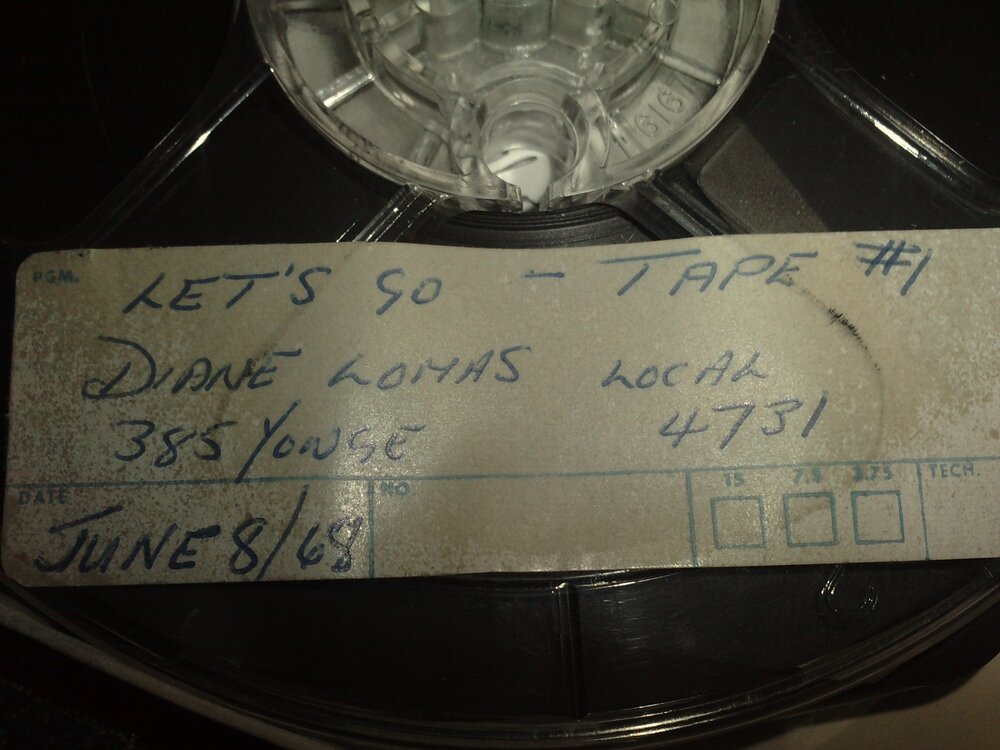 PGM. LET'S GO - TAPE #1
DIANE LOMAS LOCAL
385 YONGE 4731
DATE NO 15 7.5 3.75 TECH.
JUNE 8/68